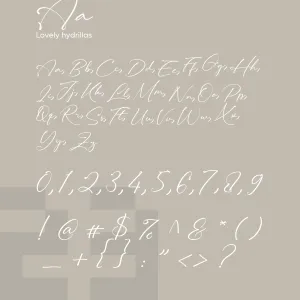 Aa
Lovely hydrillas
Aa Bb Cc Dd Ee Ff Gg Hh
Ii Jj Kk Ll Mm Nn Oo Pp
Qq Rr Ss Tt Uu Vv Ww Xx
Yy Zz
0,1,2,3,4,5,6,7,8,9
! @ # $ % ^ & * ( )
_ + { } : " < > ?